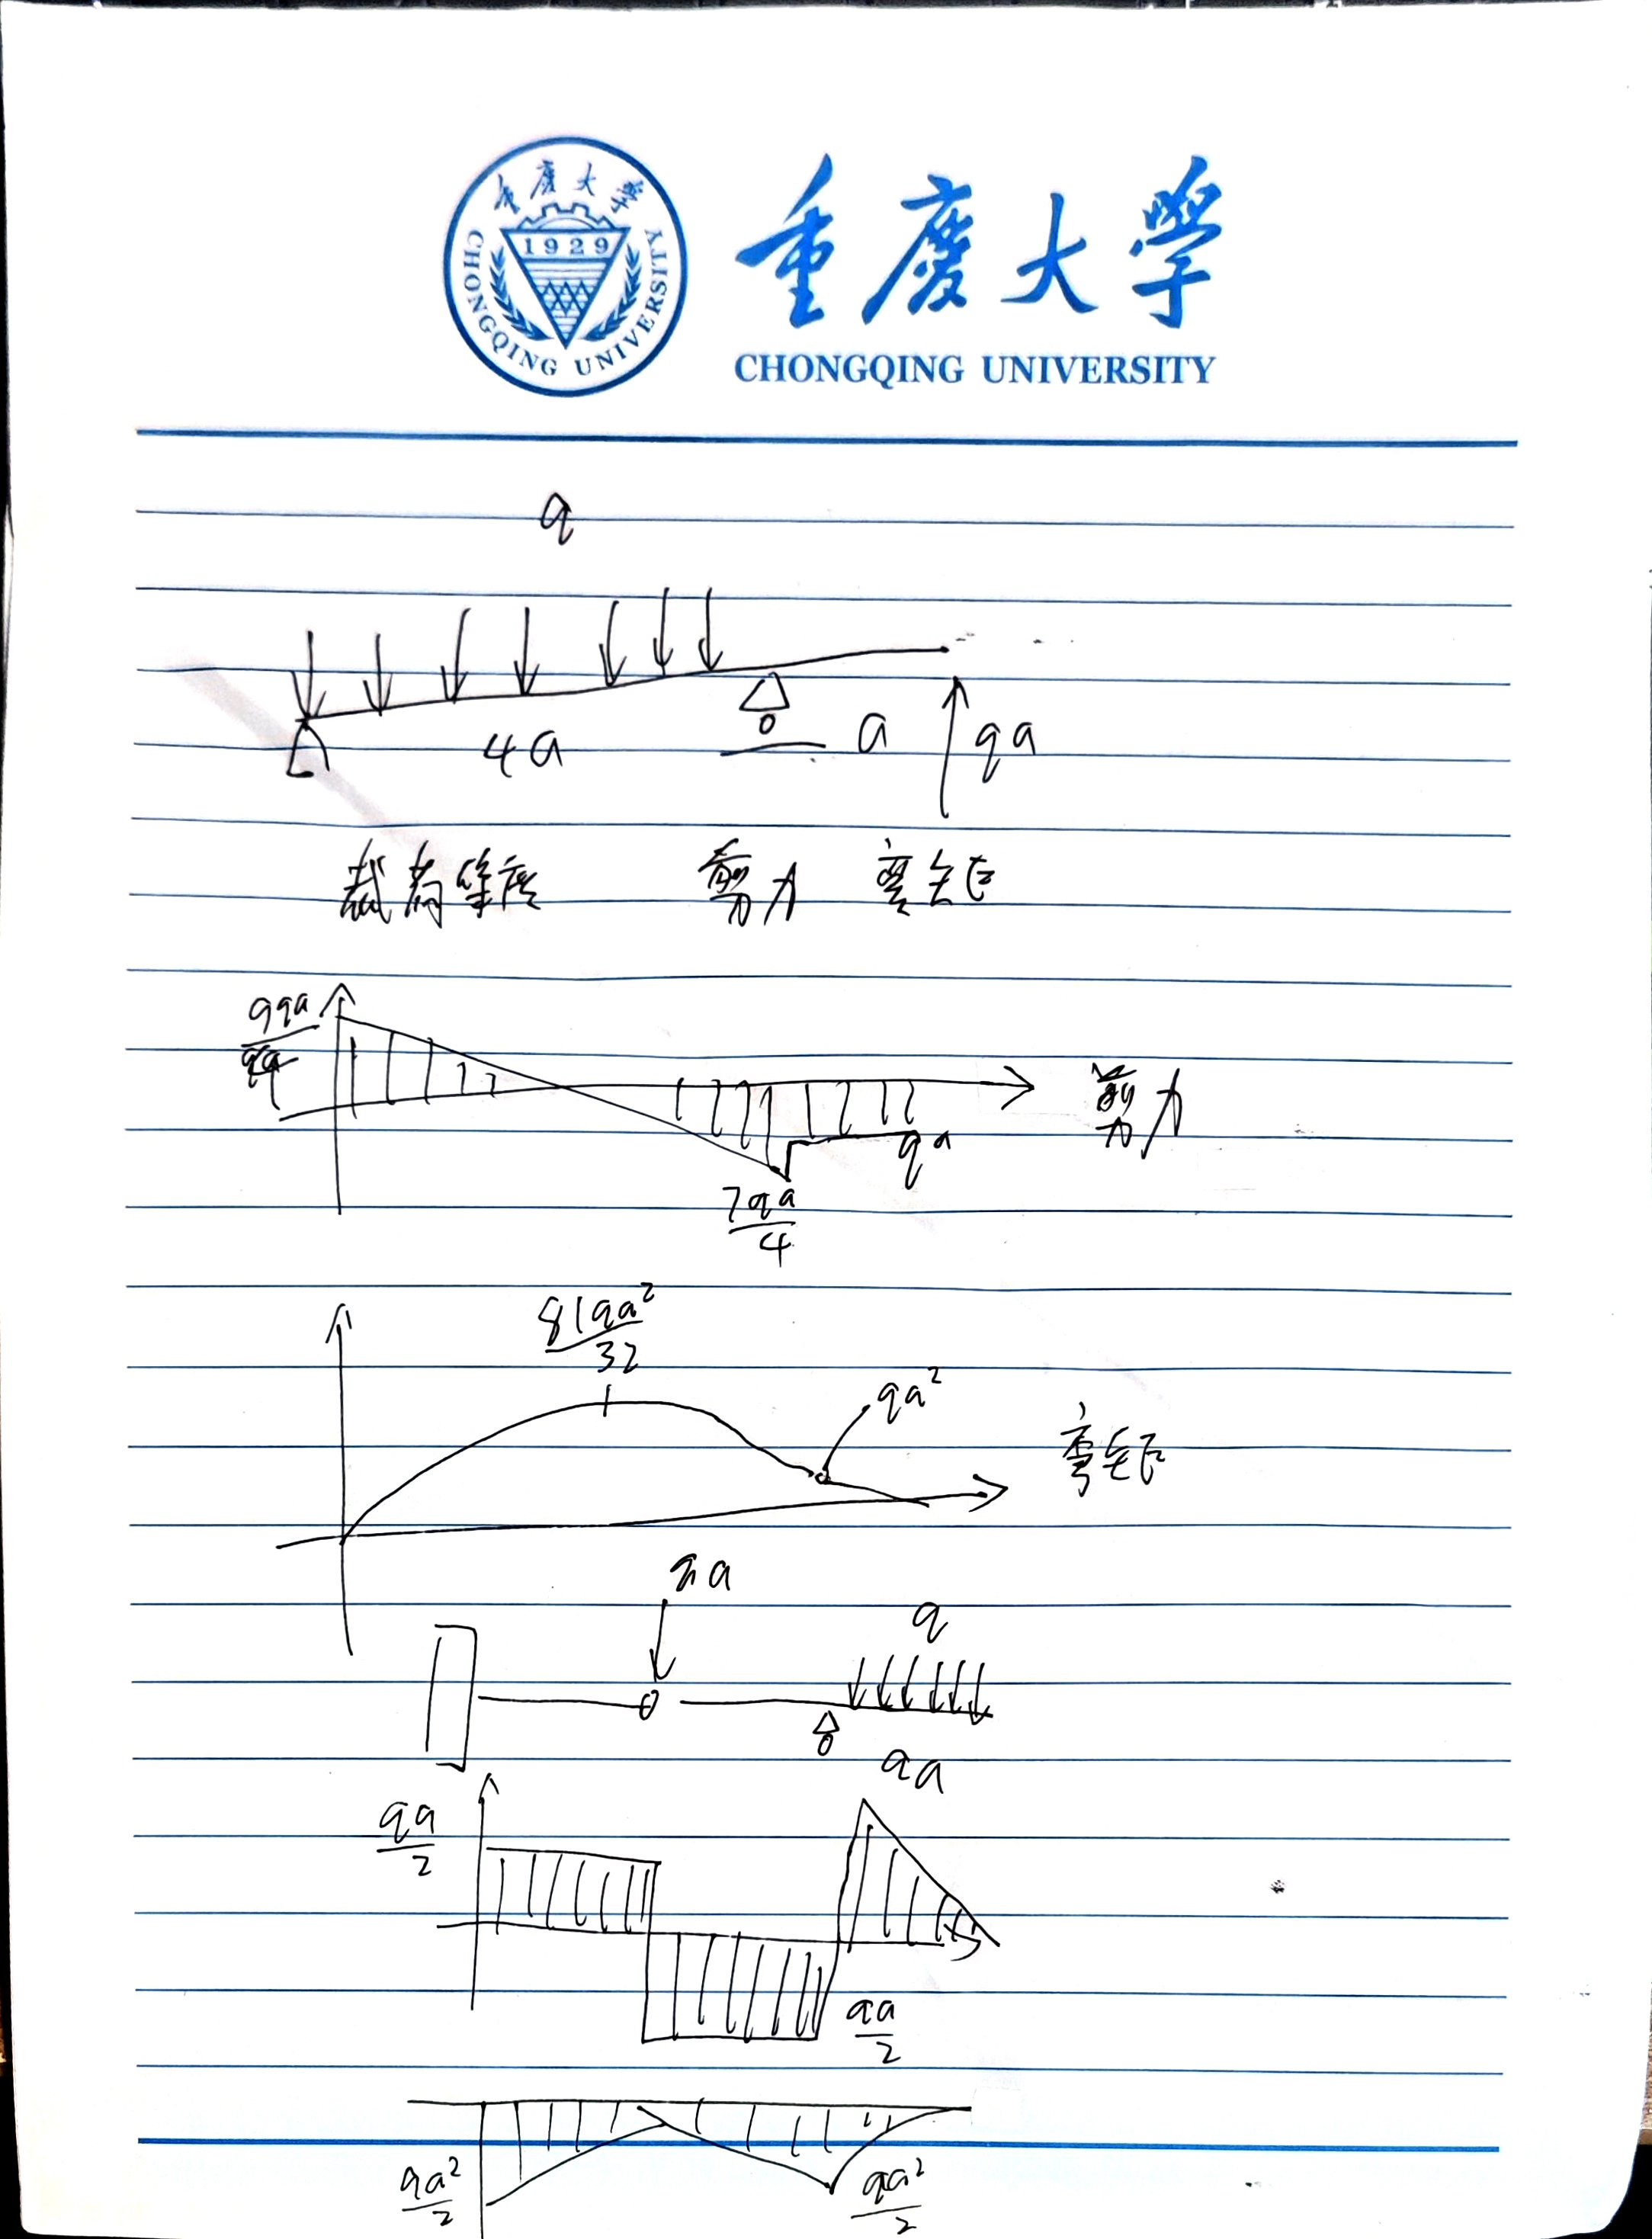 重慶大學
1929
CHONGQING UNIVERSITY
重慶大學
CHONGQING UNIVERSITY
q
4a a qa
载荷 剪力 弯矩
9qa
剪力
qa
7qa/4
81qa²/32
qa²
弯矩
q
qa/2 qa
qa/2
qa²/2 qa²/2